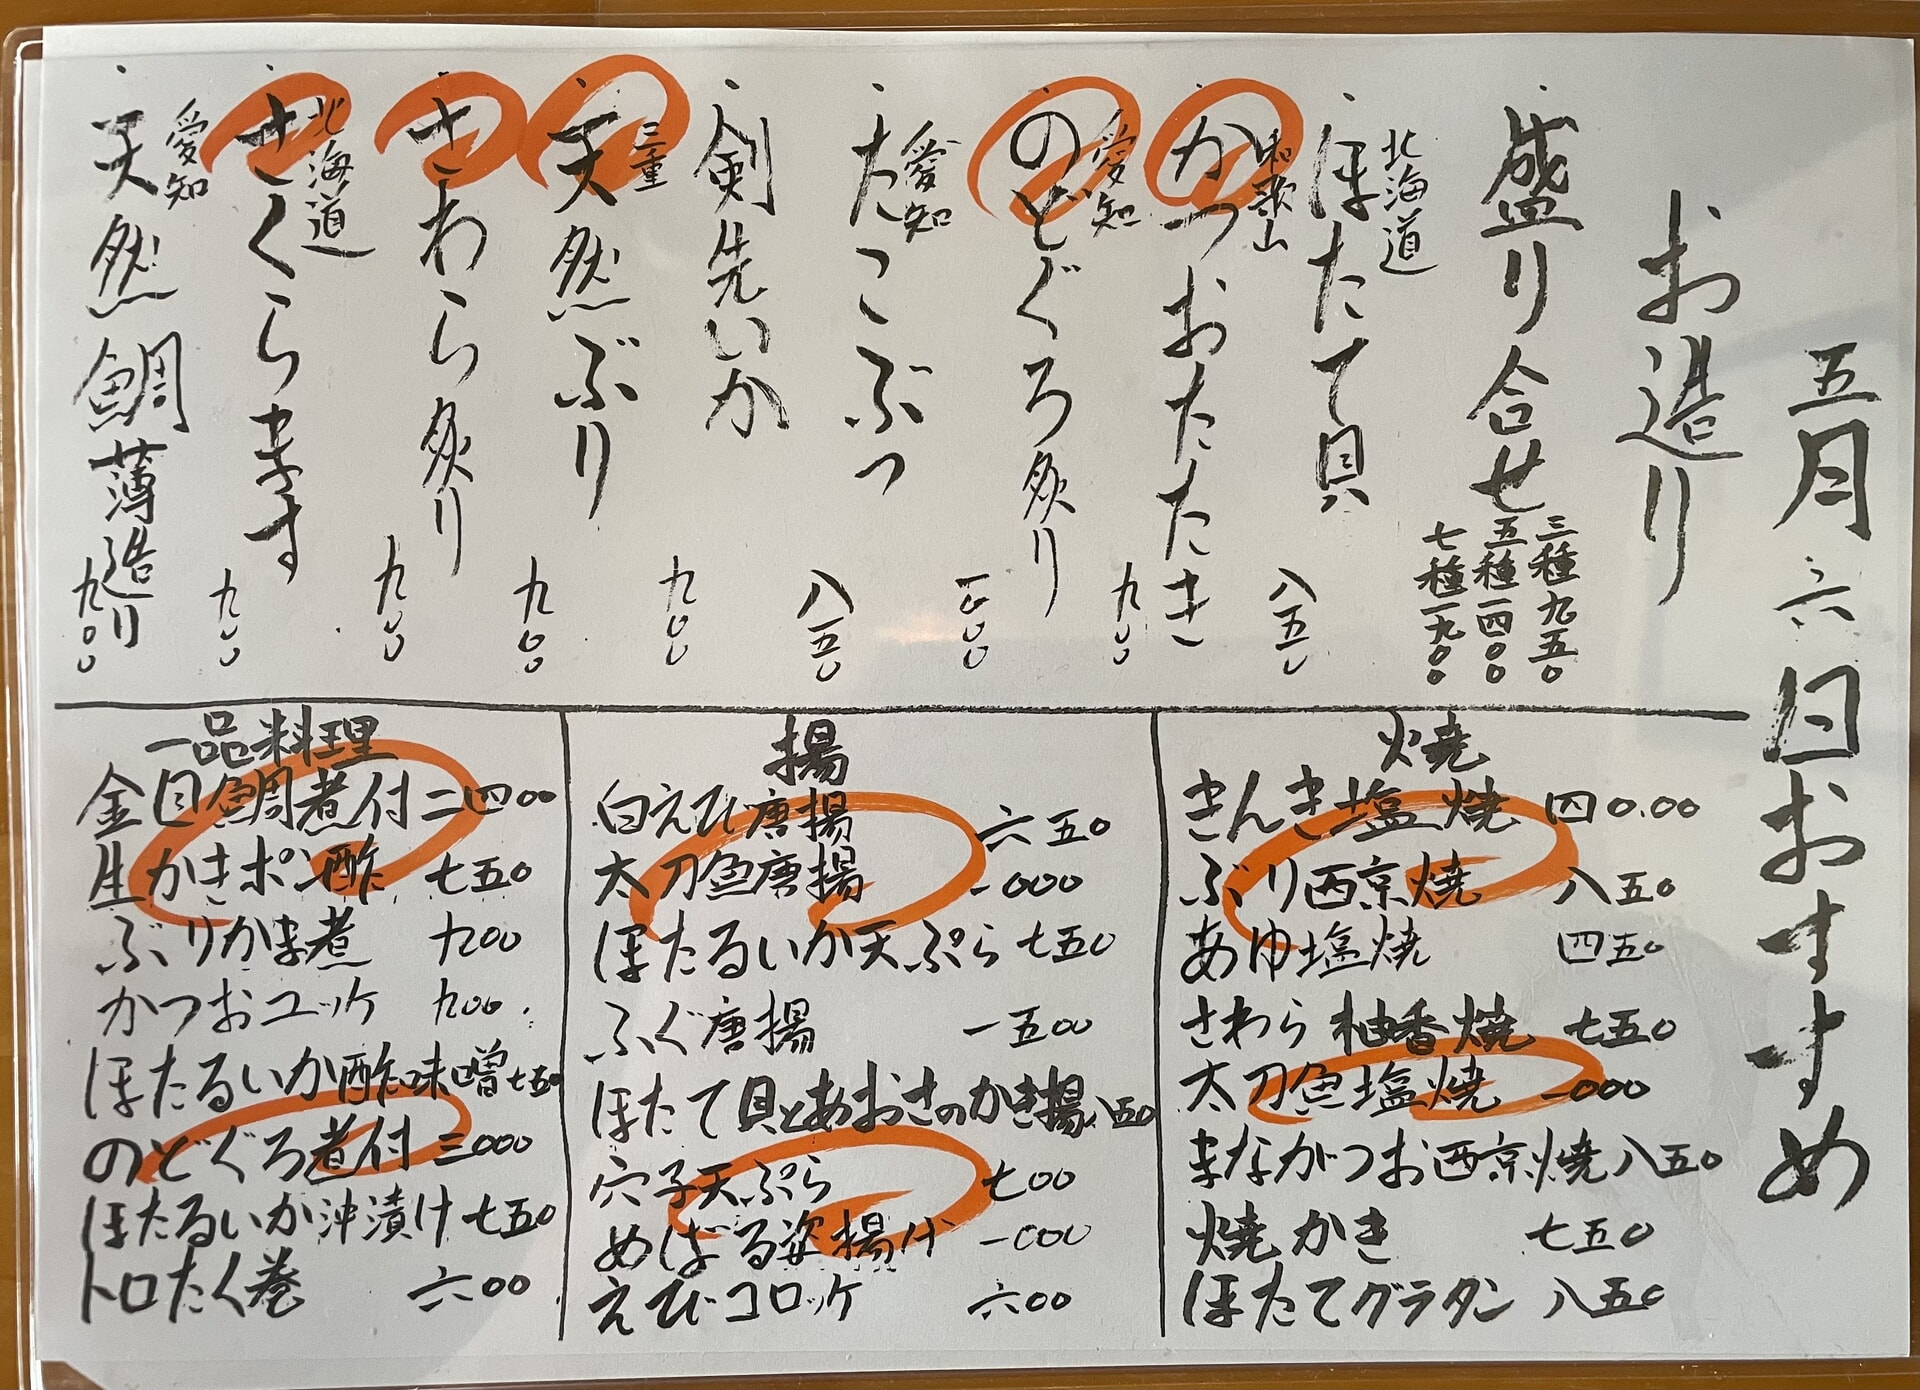 五月六日おすすめ
お造り
盛り合せ
三種九五〇
五種一四〇〇
七種一九〇〇
北海道
ほたて貝 八五〇
和歌山
かつおたたき 九〇〇
愛知
のどぐろ炙り 一六〇〇
愛知
たこぶつ 八五〇
剣先いか 九〇〇
三重
天然ぶり 九〇〇
さわら炙り 九〇〇
北海道
さくらます 九〇〇
愛知
天然鯛薄造り 九〇〇
焼
きんき塩焼 四0.00
ぶり西京焼 八五〇
あゆ塩焼 四五〇
さわら柚香焼 七五〇
太刀魚塩焼 一〇〇〇
まながつお西京焼 八五〇
焼かき 七五〇
ほたてグラタン 八五〇
揚
白えび唐揚 六五〇
太刀魚唐揚 一〇〇〇
ほたるいか天ぷら 七五〇
ふぐ唐揚 一五〇〇
ほたて貝とあおさのかき揚 八五〇
穴子天ぷら 七〇〇
めばる姿揚け 一〇〇〇
えびコロッケ 六〇〇
一品料理
金目鯛煮付 二四〇〇
生かきポン酢 七五〇
ぶりかま煮 九〇〇
かつおユッケ 九〇〇
ほたるいか酢味噌 七五〇
のどぐろ煮付 三〇〇〇
ほたるいか沖漬け 七五〇
トロたく巻 六〇〇